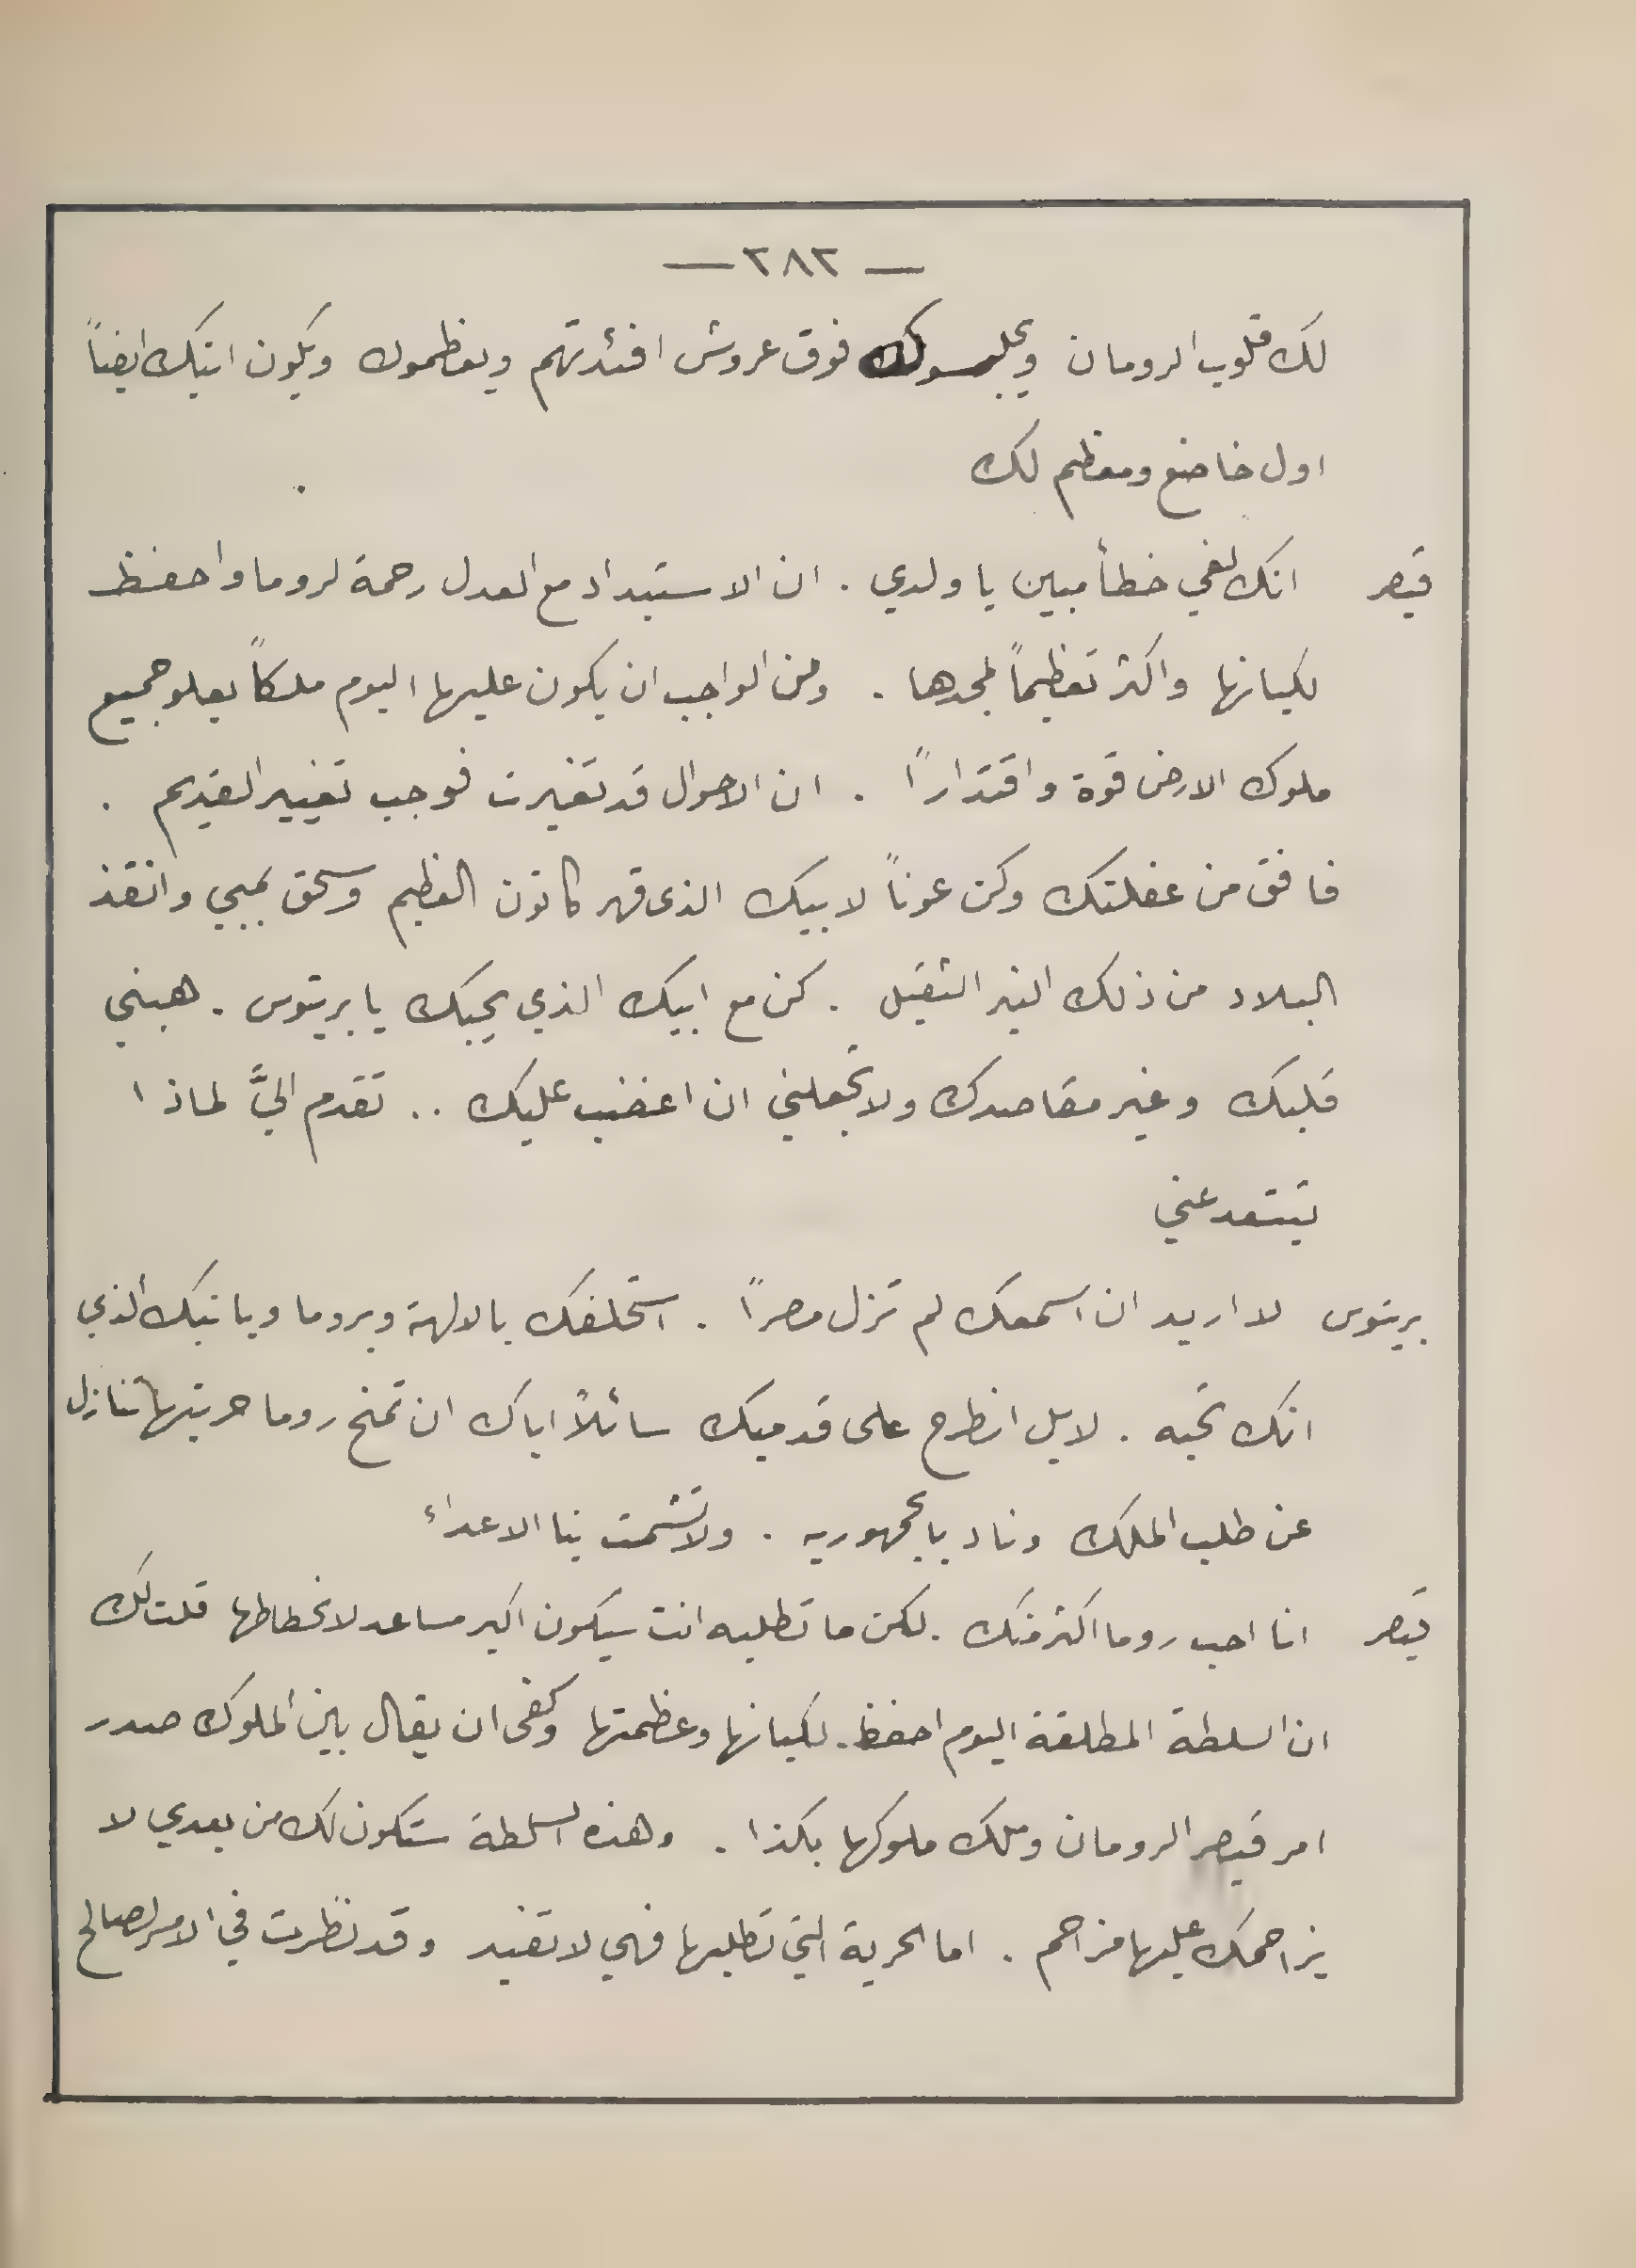 — ٢٨٢ —
لك قلوب الرومان ويجلسونك فوق عروش افئدتهم ويعظمونك ويكون ابنك ايضاً
اول خاضع ومعظم لك
قيصر انك لفي خطأ مبين يا ولدي . ان الاستبداد مع العدل رحمة لروما واحفظ
لكيانها واكثر تعظيماً لمجدها . ومن الواجب ان يكون عليها اليوم ملكاً يعلو جميع
ملوك الارض قوة واقتداراً . ان الاحوال قد تغيرت فوجب تغيير القديم .
فافق من غفلتك وكن عوناً لابيك الذي قهر كاتون العظيم وسحق بمبي وانقذ
البلاد من ذلك النير الثقيل . كن مع ابيك الذي يحبك يا بريتوس . هبني
قلبك وغير مقاصدك ولا تجعلني ان اغضب عليك .. تقدم اليَّ لماذا
تبتعد عني
بريتوس لا اريد ان اسمعك لم تزل مصراً . استحلفك بالالهة وبروما وبابنك الذي
انك تحبه . لا بل انطرح على قدميك سائلاً اياك ان تمنح روما حريتها تنازل
عن طلب الملك وناد بالجمهوريه . ولا تشمت بنا الاعداء
قيصر انا احب روما اكثر منك . لكن ما تطلبه انت سيكون اكبر مساعد لانحطاطها قلت لك
ان السلطة المطلقة اليوم احفظ . لكيانها وعظمتها وكفى ان يقال بين الملوك صدر
امر قيصر الرومان وملك ملوكها بكذا . وهذه السلطة ستكون لك من بعدي لا
يزاحمك عليها مزاحم . اما الحرية التي تطلبها فهي لا تفيد وقد نظرت في الامر لصالح